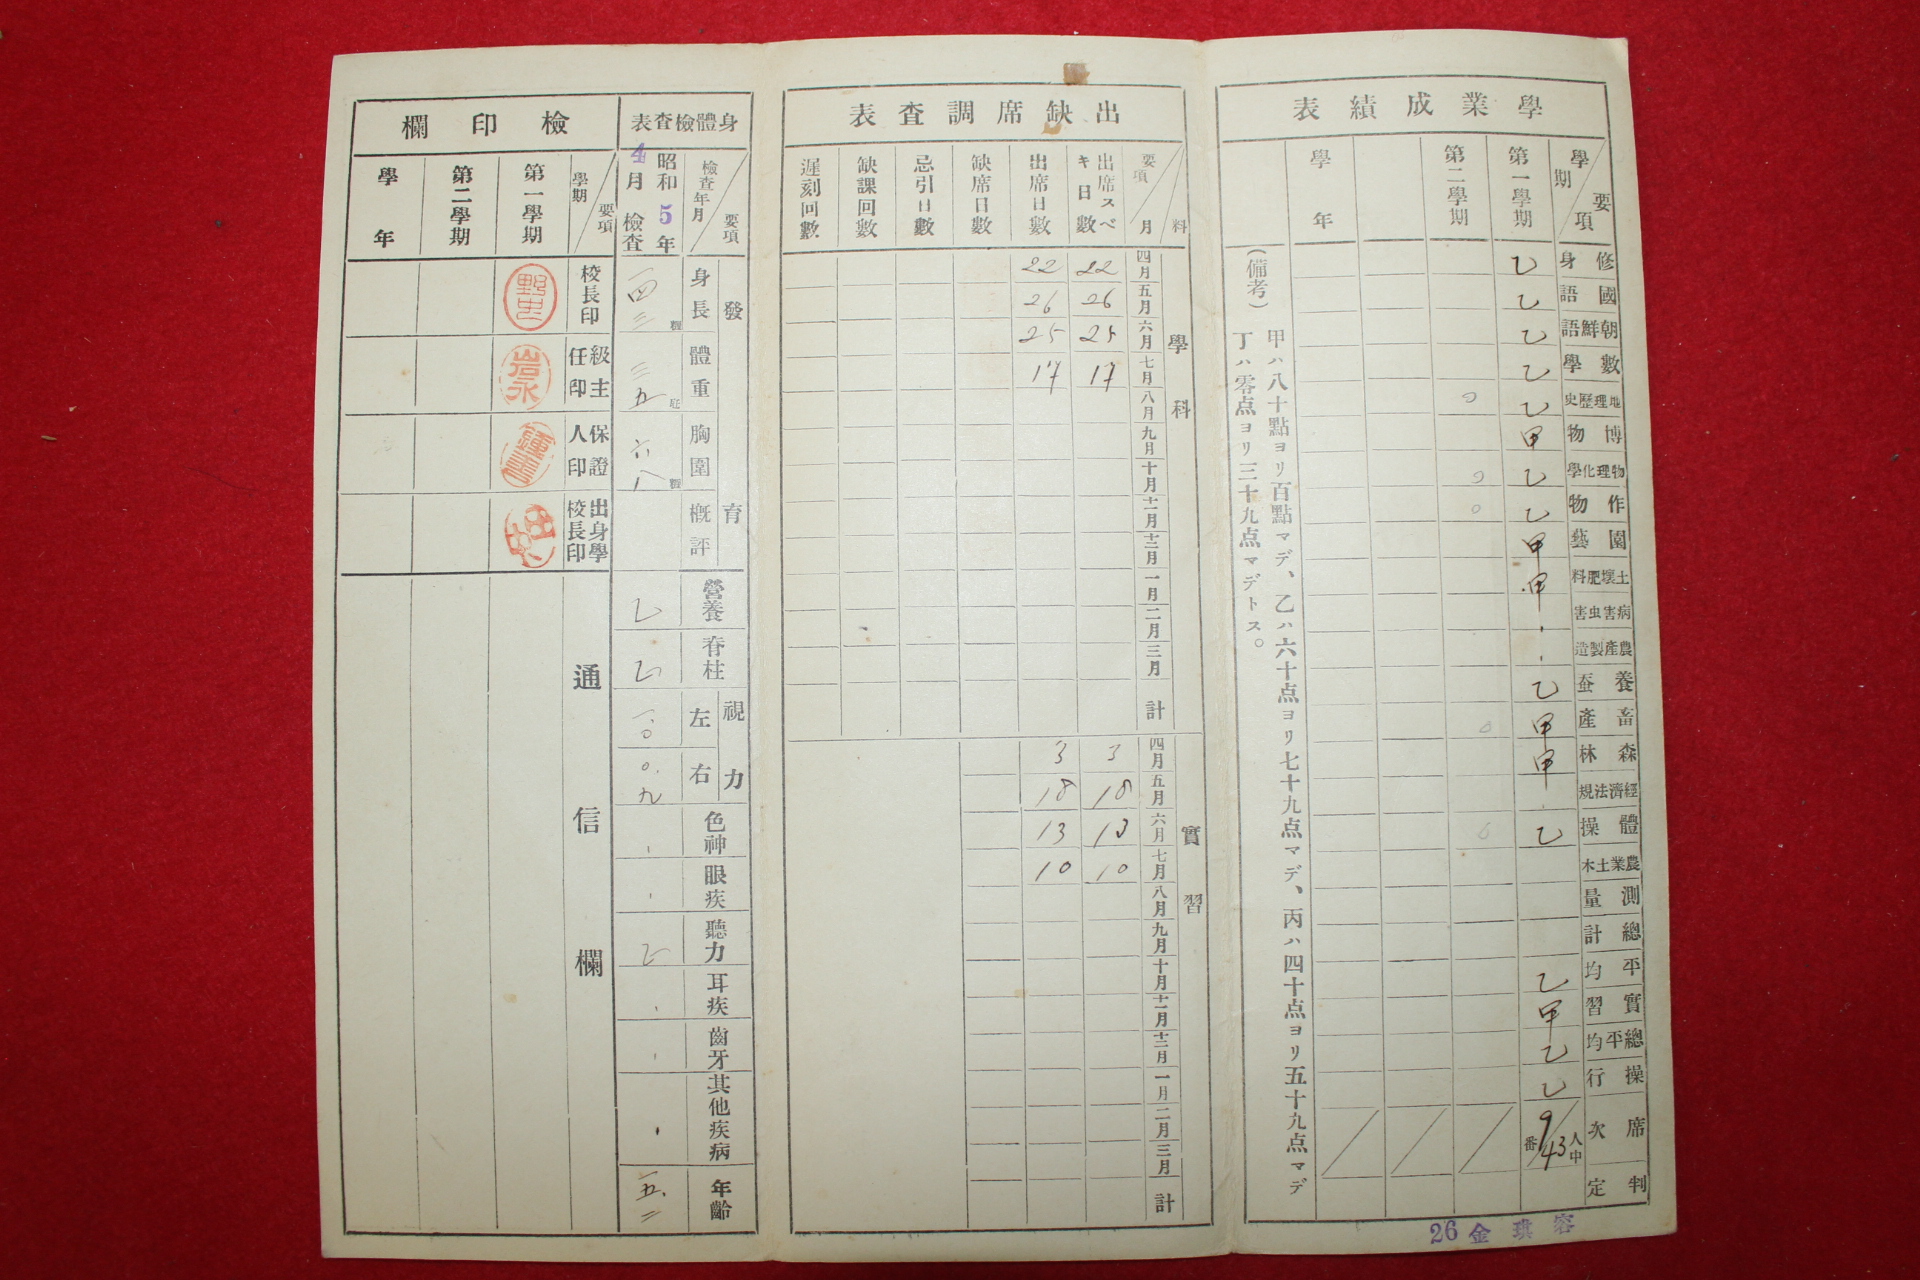 學業成績表
學期 要項
第一學期
第二學期
學年
修身 乙
國語 乙
朝鮮語 乙
數學 乙
地理歷史 乙
博物 甲
物理化學 乙
作物 乙
園藝 甲
土壤肥料 甲
病害虫害
農産製造
養蚕 乙
畜產 甲
森林 甲
經濟法規
體操 乙
農業土木
測量
總計
平均 乙
實習 甲
總平均 乙
操行 乙
席次 9/43 人中 番
判定
(備考)
甲ハ八十點ヨリ百點マデ、乙ハ六十点ヨリ七十九点マデ、丙ハ四十点ヨリ五十九点マデ
丁ハ零点ヨリ三十九点マデトス。
26 金 琪 容
出缺席調査表
要項 月 科
出席スベキ日數
出席日數
缺席日數
忌引日數
缺課回數
遲刻回數
學科
四月 22 22
五月 26 26
六月 25 25
七月 17 17
八月
九月
十月
十一月
十二月
一月
二月
三月
計
實習
四月 3 3
五月 18 18
六月 13 13
七月 10 10
八月
九月
十月
十一月
十二月
一月
二月
三月
計
身體檢査表
要項 檢査年月
昭和5年4月檢査
發育
身長 一四三 糎
體重 三五 瓩
胸圍 六八 糎
概評
營養 乙
脊柱 乙
視力
左 一.〇
右 〇.九
色神
眼疾
聽力 乙
耳疾
齒牙
其他疾病
年齡 一五、二
檢印欄
要項 學期
第一學期
第二學期
學年
校長印
級主任印 岩永
保證人印
出身學校長印
通信欄